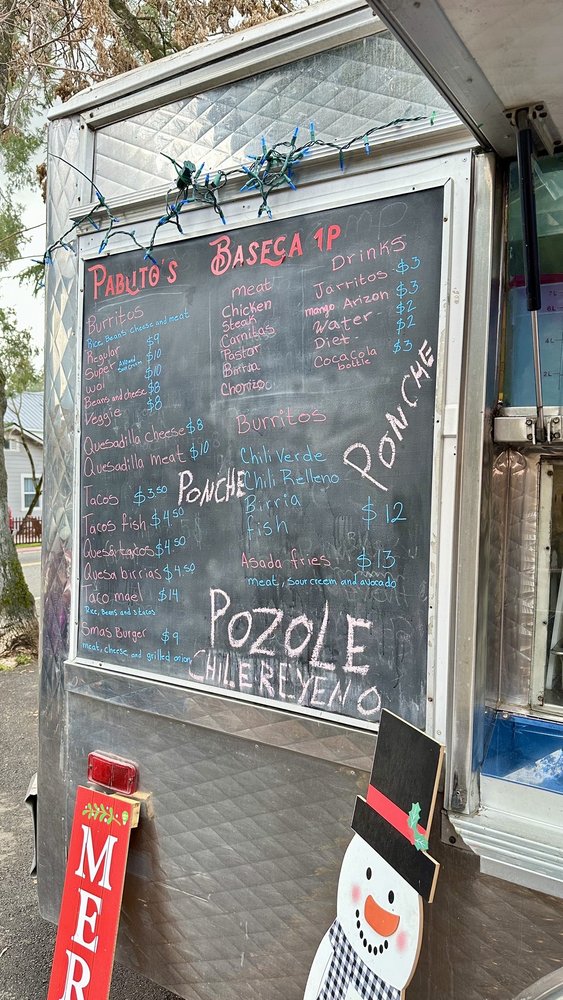 PABLITO'S BASECA 1P
Burritos
Rice, Beans cheese and meat
Regular $9
Super $10
wol $10
Beans and cheese $8
Veggie $8
Quesadilla cheese $8
Quesadilla meat $10
Tacos $3.50
Tacos fish $4.50
Quesa tacos $4.50
Quesa birrias $4.50
Taco mael $14
Rice, Beans and 3 tacos
Smas Burger $9
meat, cheese, and grilled onion
meat
Chicken
Steak
Carnitas
Pastor
Birria
Chorizo
Drinks
Jarritos $3
mango Arizon $3
Water - $2
Diet - $2
CocaCola $3
bottle
PONCHE
Burritos
Chili Verde
Chili Relleno
Birria
fish
$12
PONCHE
Asada fries $13
meat, sour creem and avocado
POZOLE
CHILEREYENO
MER